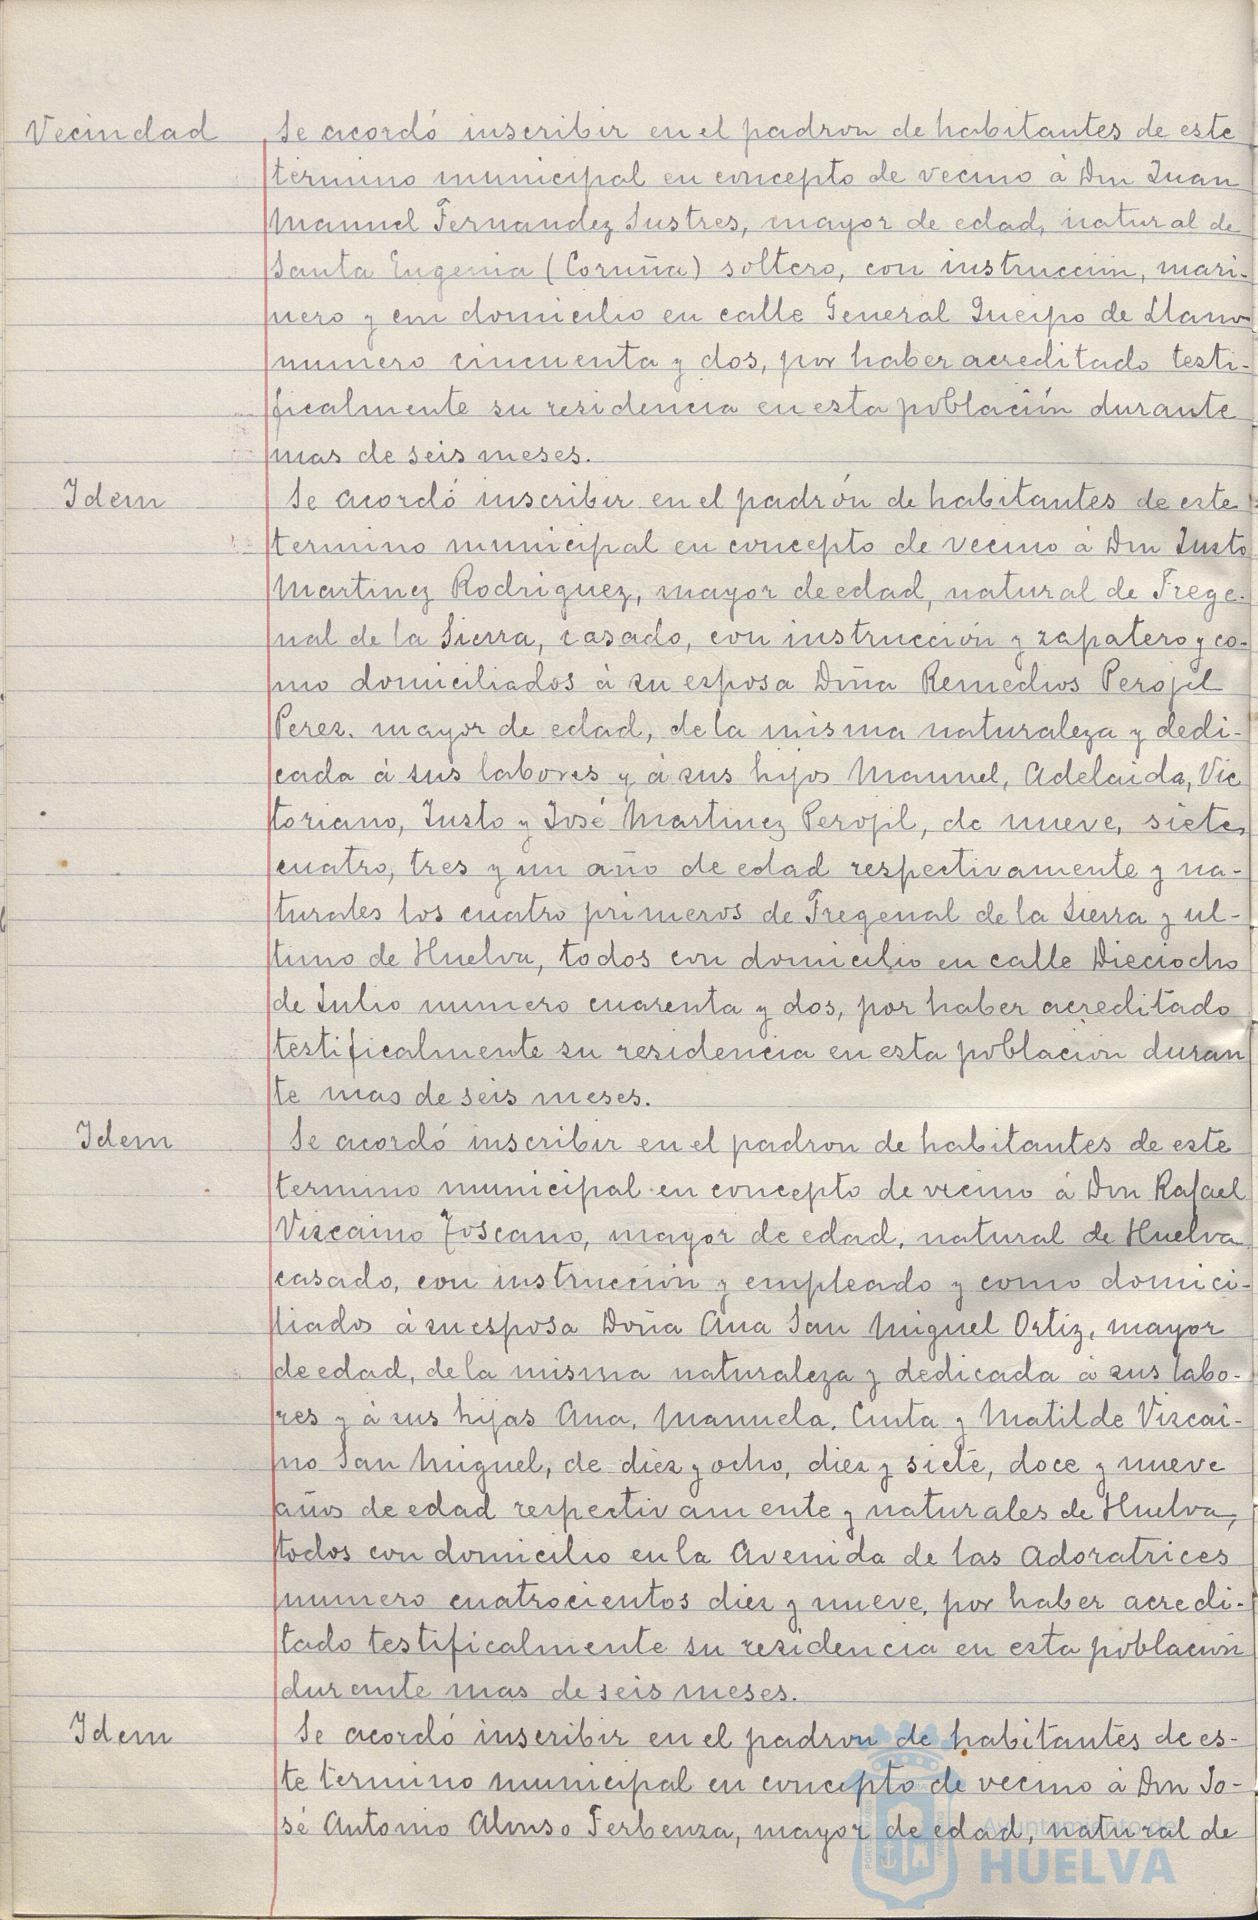 Vecindad Se acordó inscribir en el padron de habitantes de este
termino municipal en concepto de vecino á Don Juan
Manuel Fernandez Sustres, mayor de edad, natural de
Santa Eugenia (Coruña) soltero, con instrucción, mari-
nero y con domicilio en calle General Queipo de Llano
numero cincuenta y dos, por haber acreditado testi-
ficalmente su residencia en esta población durante
mas de seis meses.
Idem Se acordó inscribir en el padrón de habitantes de este
termino municipal en concepto de vecino á Don Justo
Martinez Rodriguez, mayor de edad, natural de Frege-
nal de la Sierra, casado, con instrucción y zapatero y co-
mo domiciliados á su esposa Doña Remedios Perojil
Perez, mayor de edad, de la misma naturaleza y dedi-
cada á sus labores y á sus hijos Manuel, Adelaida, Vic
toriano, Justo y José Martinez Perojil, de nueve, siete,
cuatro, tres y un año de edad respectivamente y na-
turales los cuatro primeros de Fregenal de la Sierra y ul-
timo de Huelva, todos con domicilio en calle Dieciocho
de Julio numero cuarenta y dos, por haber acreditado
testificalmente su residencia en esta poblacion duran
te mas de seis meses.
Idem Se acordó inscribir en el padron de habitantes de este
termino municipal en concepto de vecino á Don Rafael
Vizcaino Toscano, mayor de edad, natural de Huelva
casado, con instrucción y empleado y como domici-
liados á su esposa Doña Ana San Miguel Ortiz, mayor
de edad, de la misma naturaleza y dedicada á sus labo-
res y á sus hijas Ana, Manuela, Cinta y Matilde Vizcai-
no San Miguel, de diez y ocho, diez y siete, doce y nueve
años de edad respectivamente y naturales de Huelva,
todos con domicilio en la Avenida de las Adoratrices
numero cuatrocientos diez y nueve, por haber acredi-
tado testificalmente su residencia en esta poblacion
durante mas de seis meses.
Idem Se acordó inscribir en el padron de habitantes de es-
te termino municipal en concepto de vecino á Don Jo-
sé Antonio Alonso Ferbenza, mayor de edad, natural de
Ayuntamiento de
HUELVA